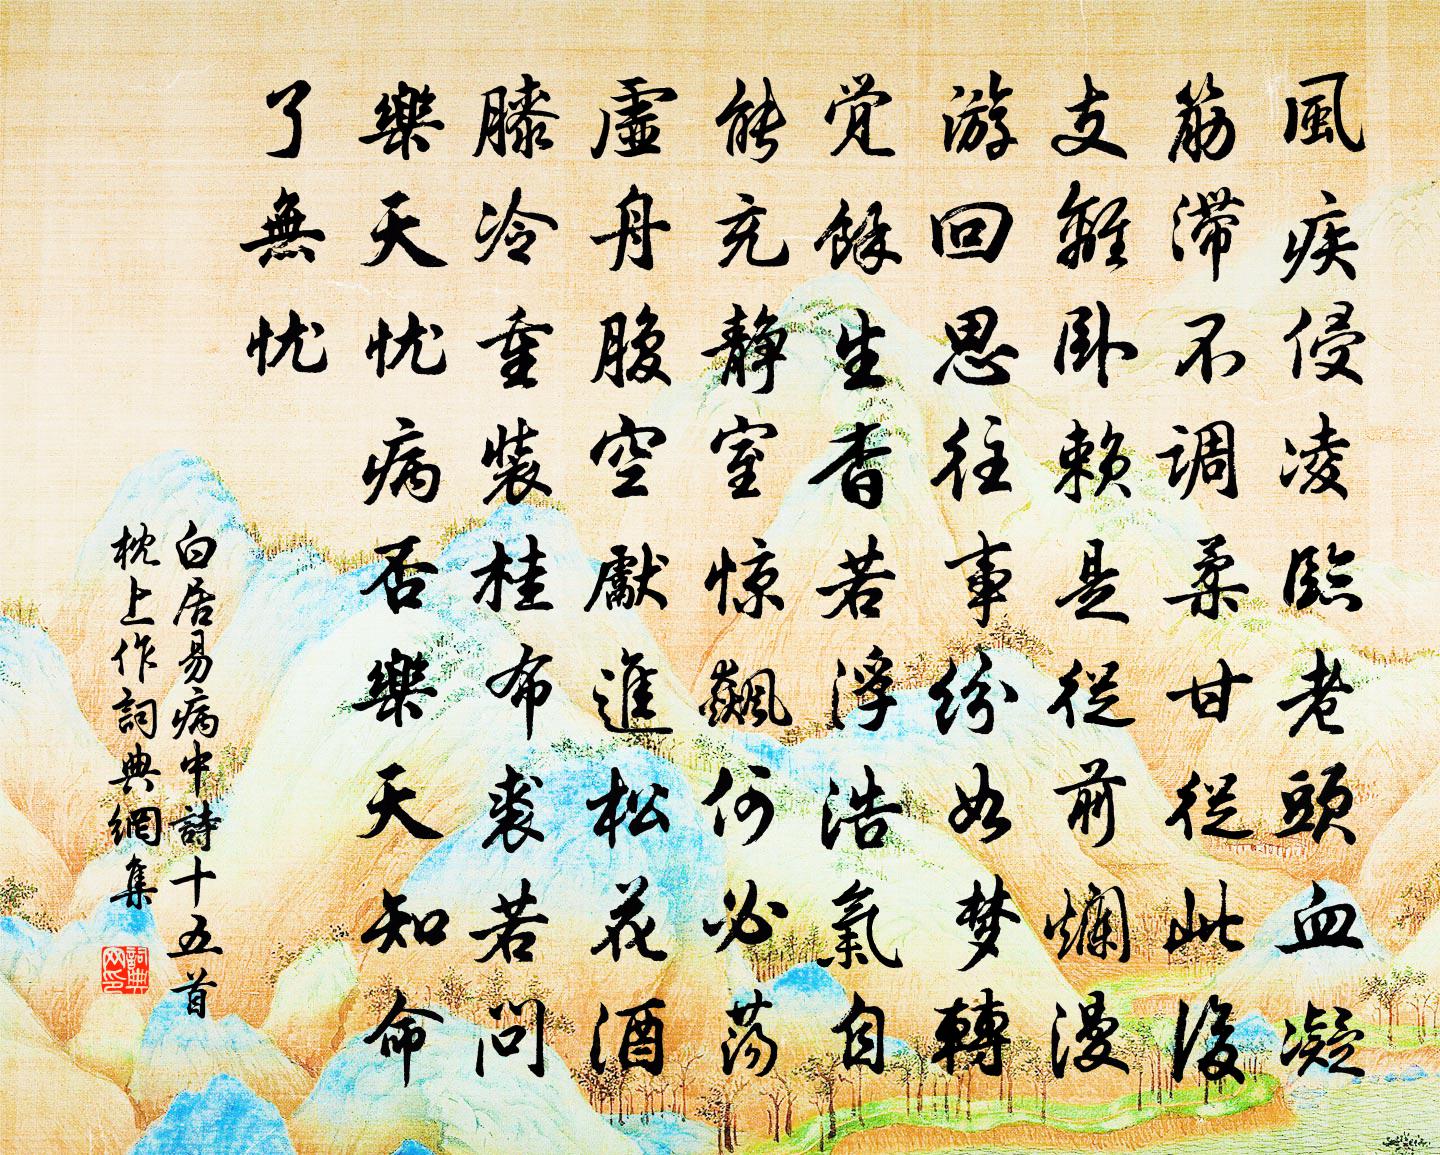 風疾侵凌臨老頭血凝
筋滞不調柔甘從此後
支離卧赖是從前爛漫
游回思往事紛如梦轉
觉餘生杳若浮浩氣自
能充静室惊飆何必荡
虛舟腹空獻進松花酒
膝冷重裝桂布裘若問
樂天忧病否樂天知命
了無忧
白居易病中詩十五首
枕上作詞典網集
詞典網印